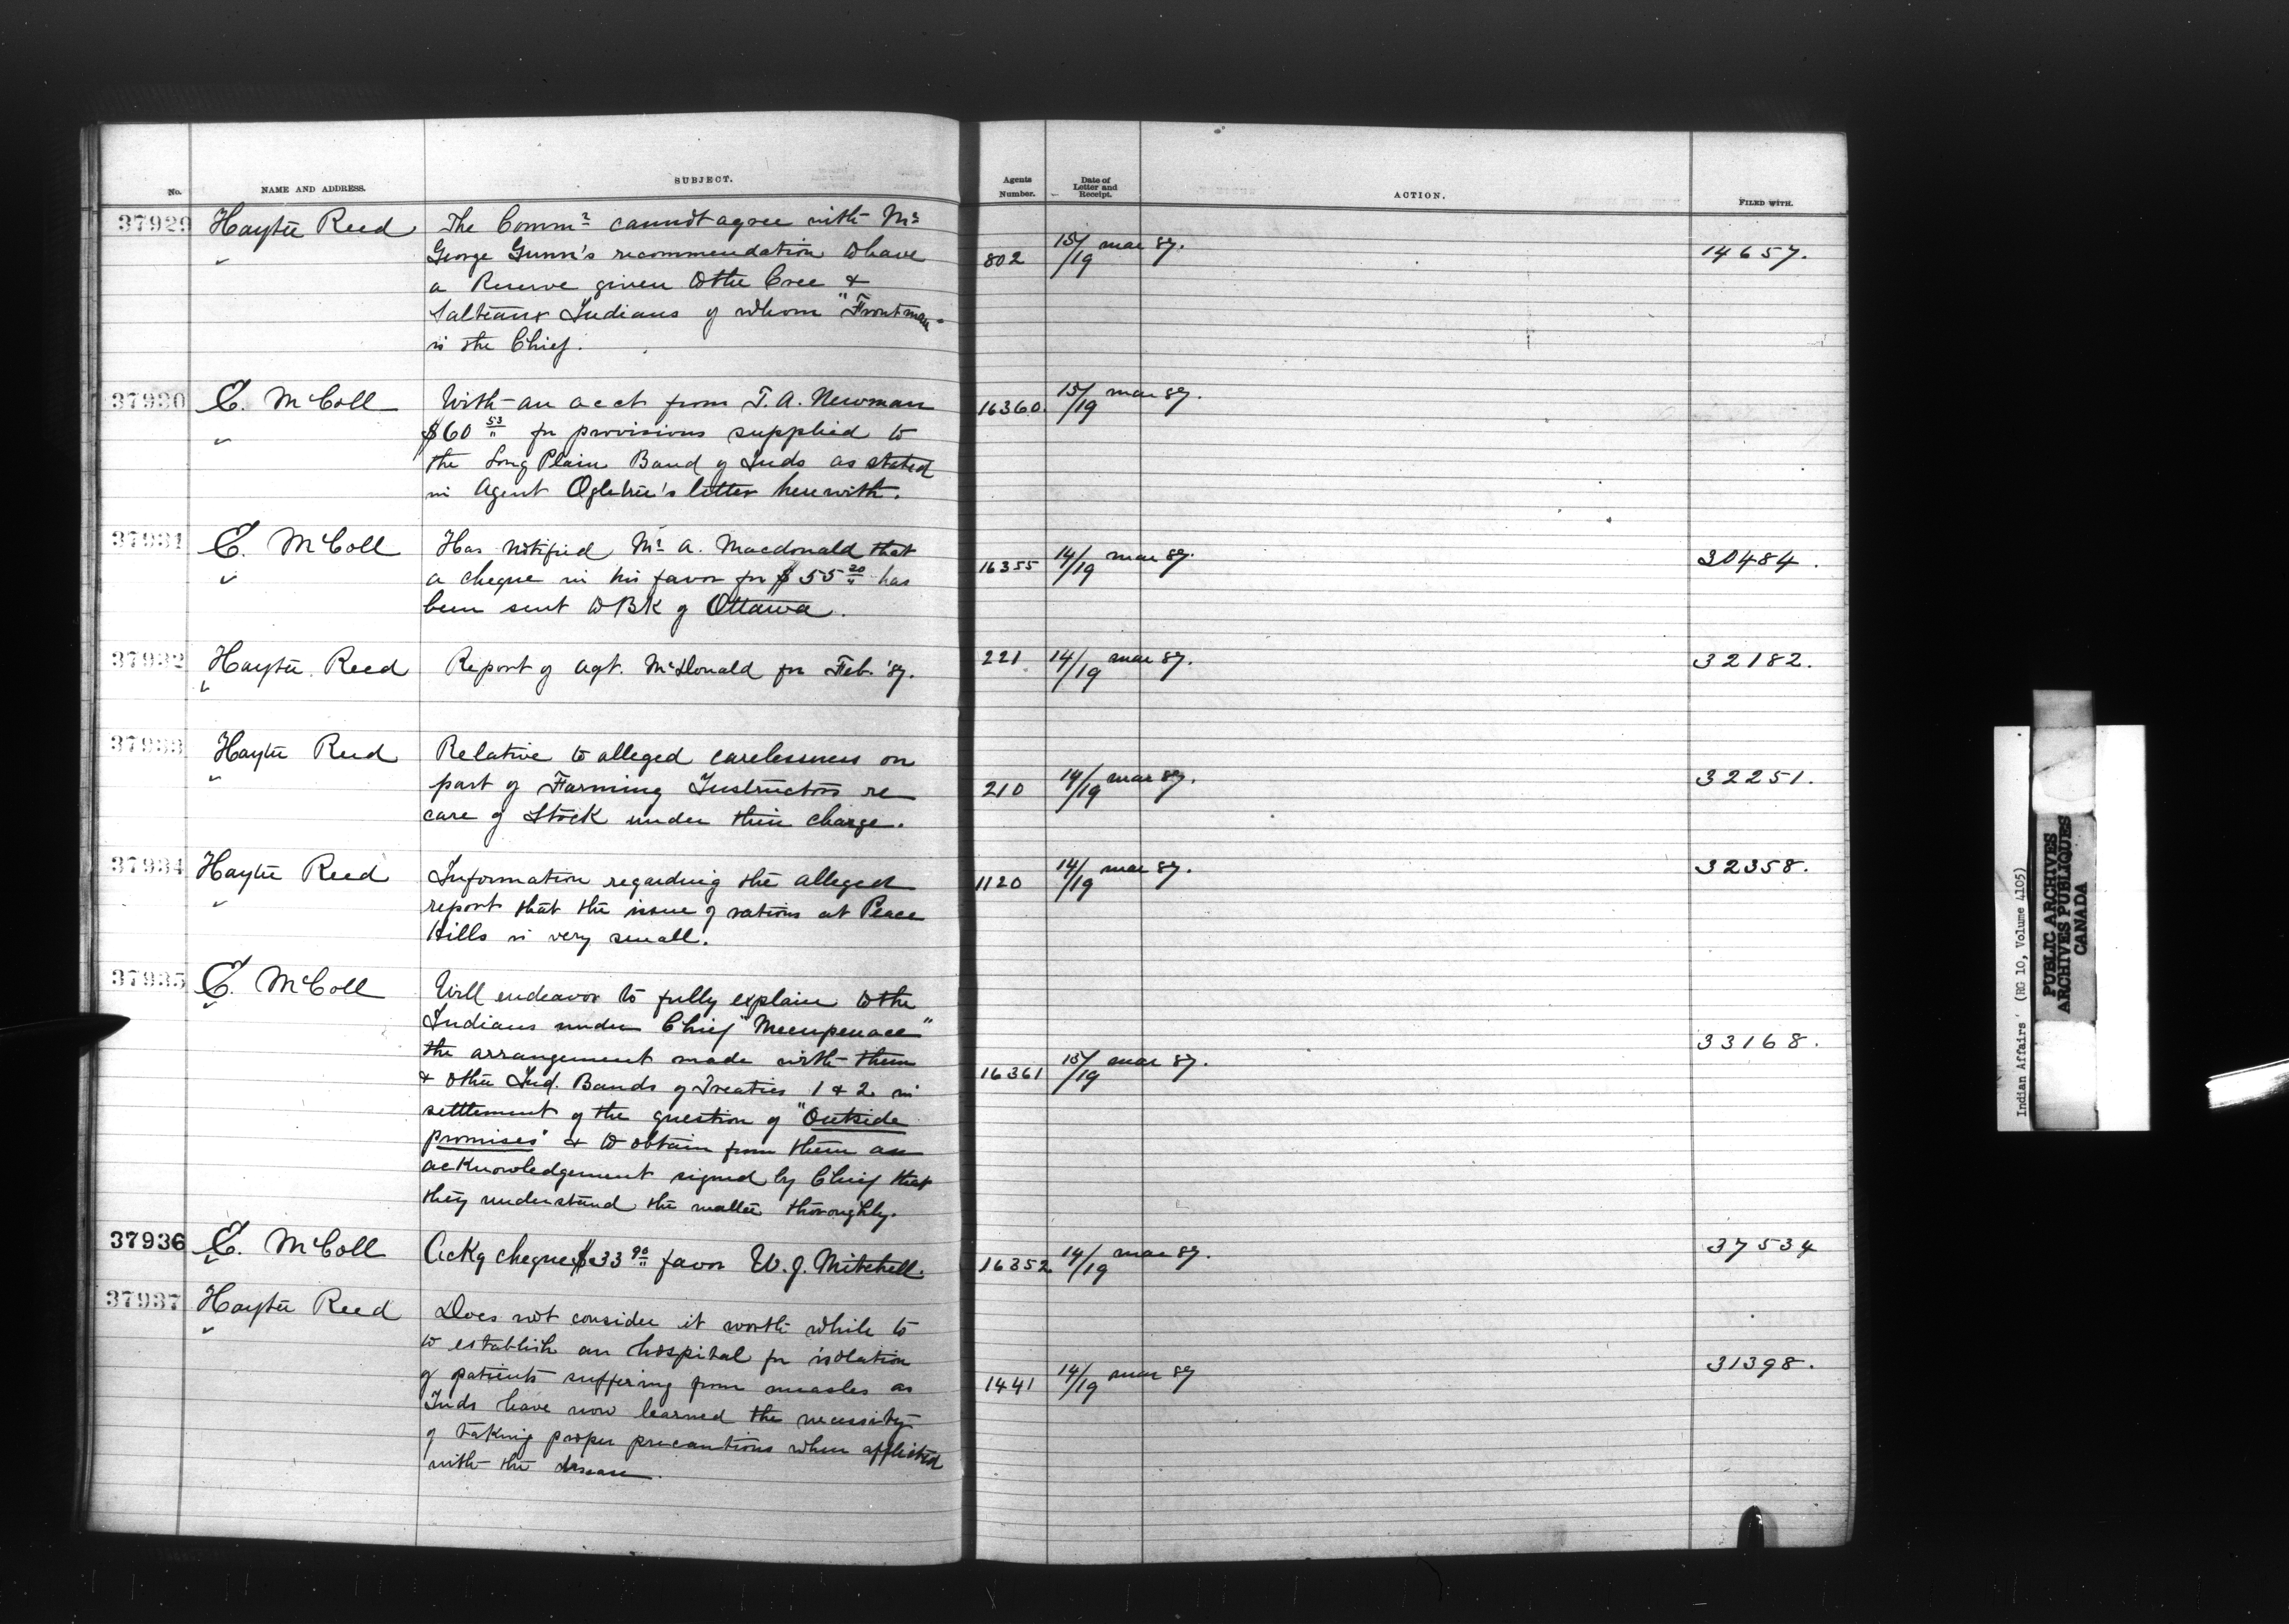 No. NAME AND ADDRESS. SUBJECT. Agents Number. Date of Letter and Receipt. ACTION. FILED WITH.
37929 Hayter Reed The Commr cannot agree with Mr
George Gunn's recommendation to have 802 15/19 mar 87. 14657.
a Reserve given to the Cree &
Salteaux Indians of whom "Frontman"
is the Chief.
37930 E. McColl With an acct from T. A. Newman 16360 15/19 mar 87.
$60 53/" for provisions supplied to
the Long Plain Band of Inds as stated
in Agent Ogletree's letter herewith.
37931 E. McColl Has notified Mr A. Macdonald that
a cheque in his favor for $55 20/" has 16355 14/19 mar 87. 30484.
been sent to BK of Ottawa.
37932 Hayter Reed Report of Agt. McDonald for Feb. '87. 221 14/19 mar 87. 32182.
37933 Hayter Reed Relative to alleged carelessness on
part of Farming Instructors re 210 14/19 mar 87. 32251.
care of Stock under their charge.
37934 Hayter Reed Information regarding the alleged 1120 14/19 mar 87. 32358.
report that the issue of rations at Peace
Hills is very small.
37935 E. McColl Will endeavor to fully explain to the
Indians under Chief "Mecupenace"
the arrangement made with them 33168.
& other Ind. Bands of Treaties 1 & 2 in 16361 15/19 mar 87.
settlement of the question of "Outside
promises" & to obtain from them an
acknowledgement signed by Chief that
they understand the matter thoroughly.
37936 E. McColl Ackg cheque $33 90/" favor W. J. Mitchell. 16352 14/19 mar 87. 37534
37937 Hayter Reed Does not consider it worth while to
to establish an hospital for isolation
of patients suffering from measles as 1441 14/19 mar 87 31398.
Inds have now learned the necessity
of taking proper precautions when afflicted
with the disease.
Indian Affairs' (RG 10, Volume 4105)
PUBLIC ARCHIVES
ARCHIVES PUBLIQUES
CANADA